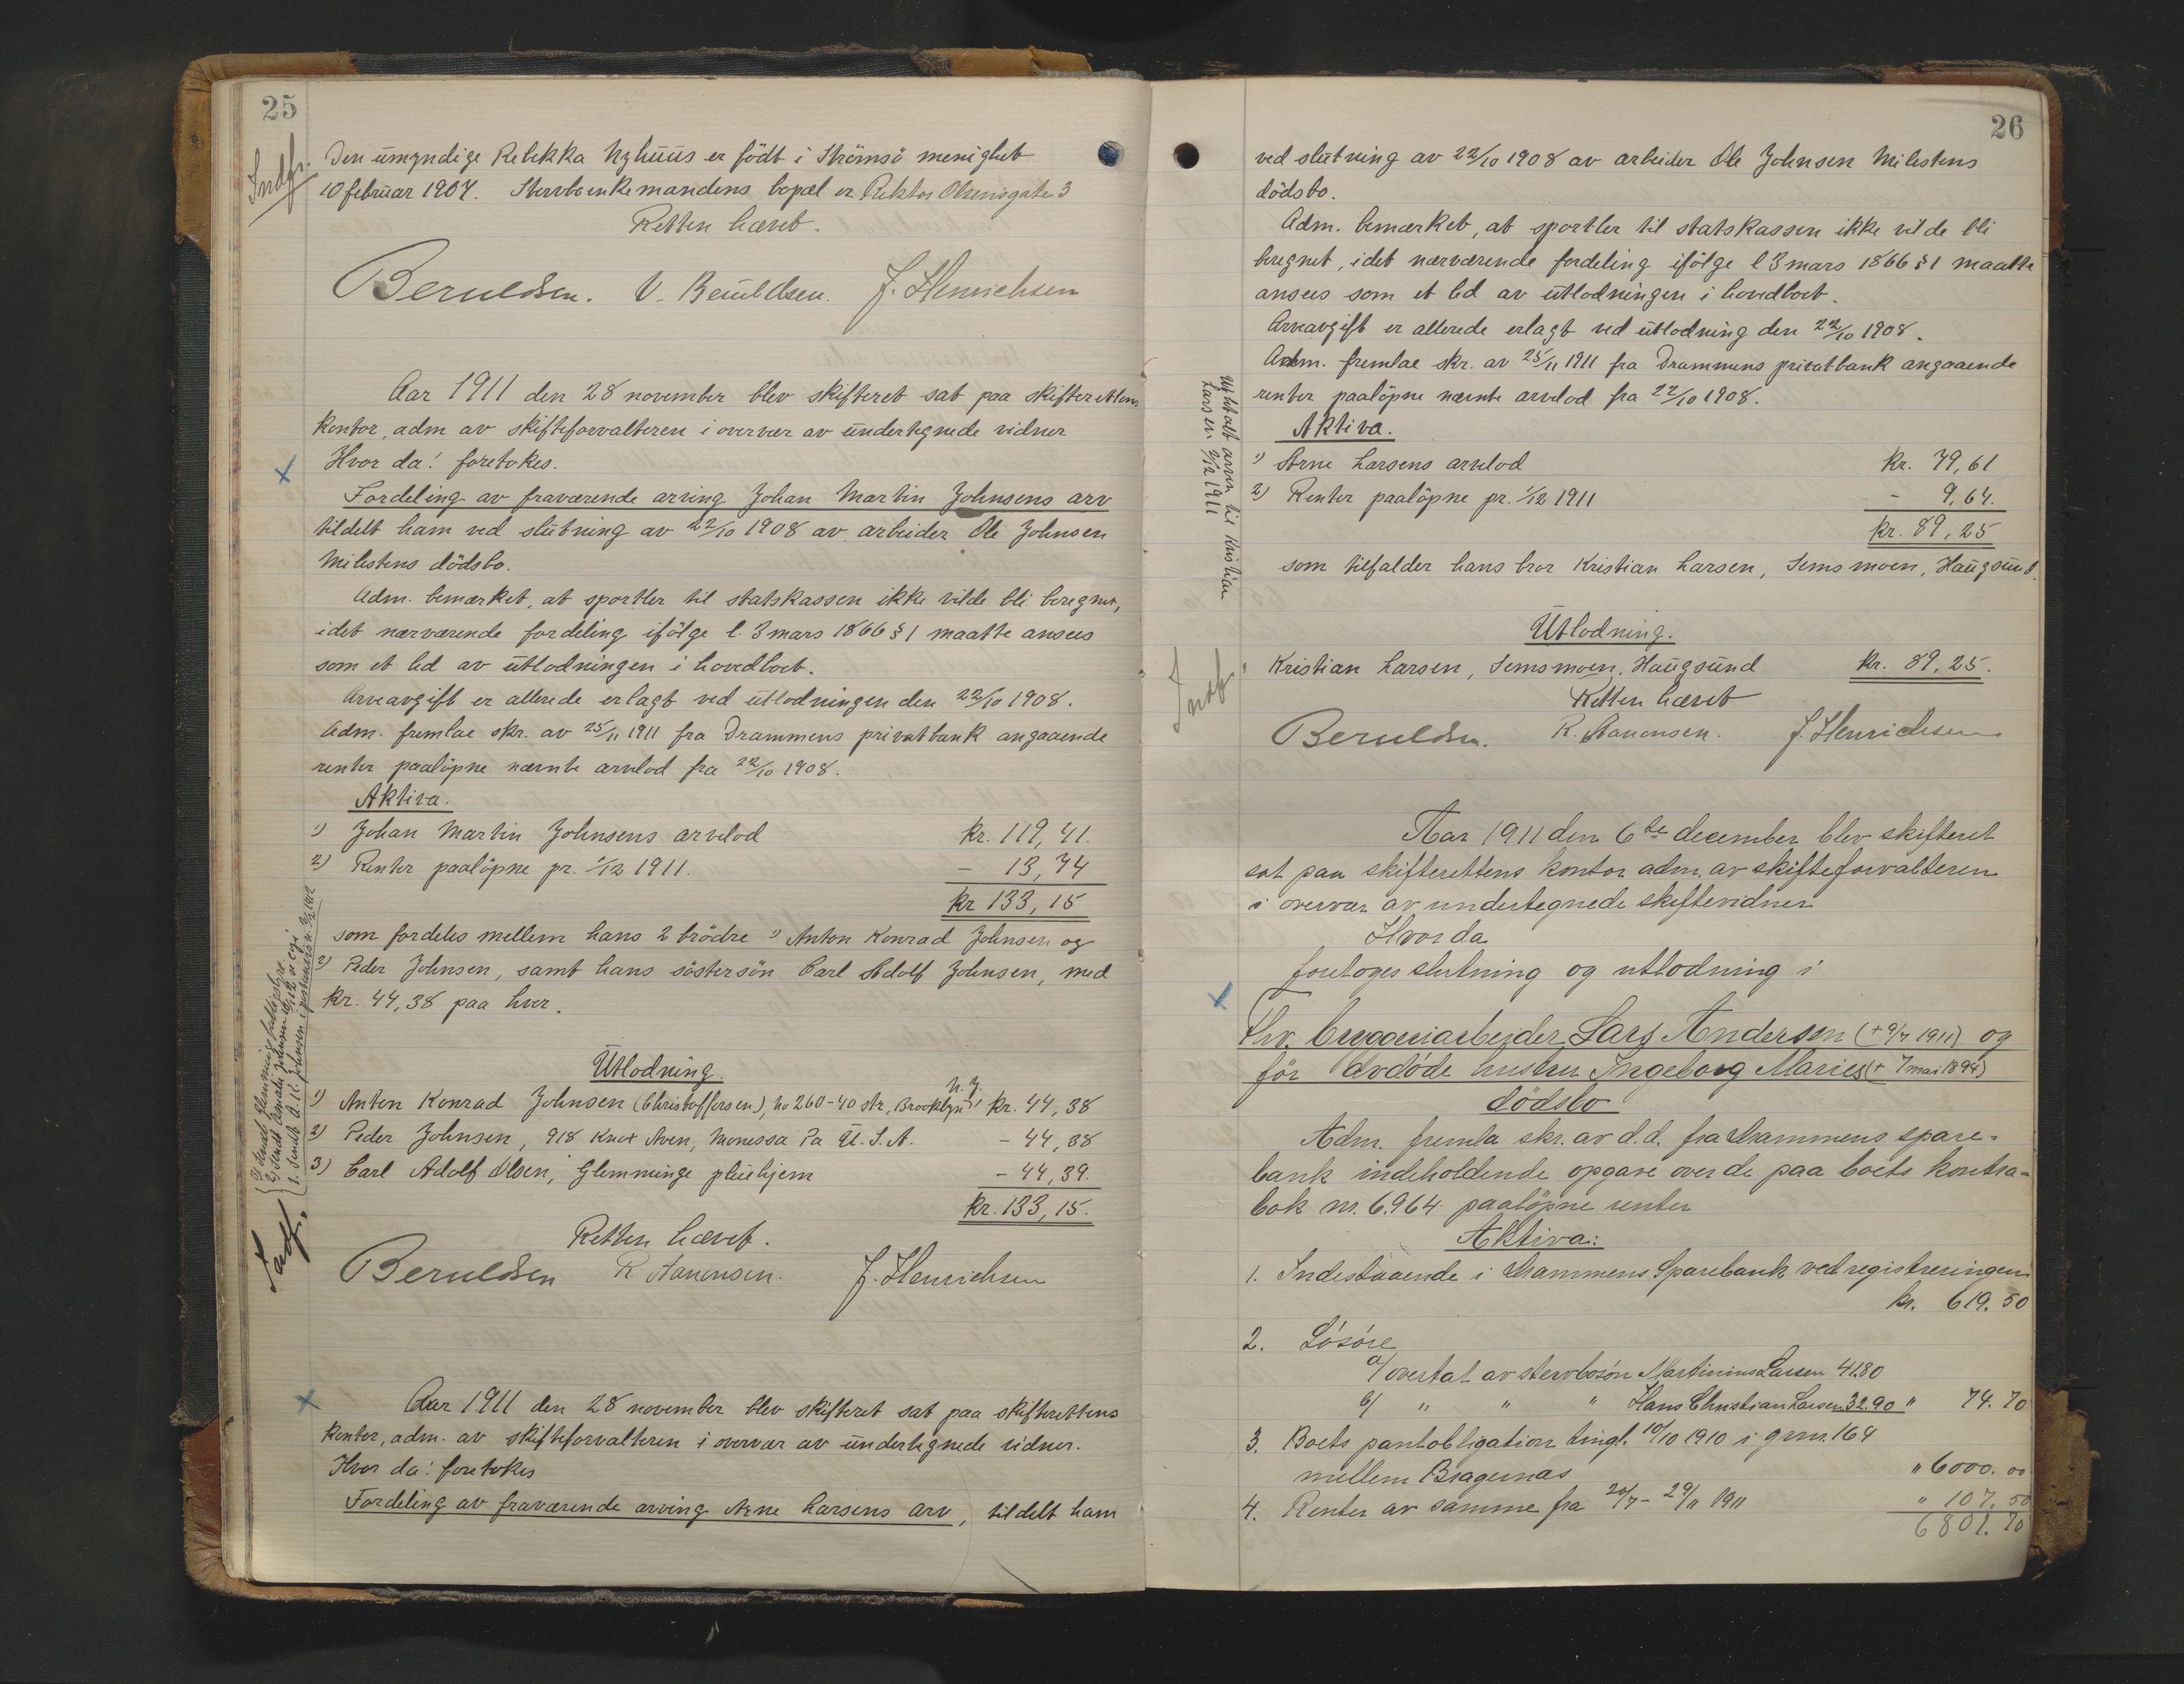 25
Indf.
Den ümyndige Rebekka Nyhüüs er födt i Strömsö menighet
10 februar 1907. Stervboenkemandens bopæl er Rektor Olsensgate 3
Retten hævet.
Beruldsen. V. Beruldsen. J. Henrichsen
Aar 1911 den 28 november blev skifteret sat paa skifterettens
kontor, adm av skifteforvalteren i overvær av ündertegnede vidner
Hvor da! foretokes.
Fordeling av fraværende arving Johan Martin Johnsens arv
tildelt ham ved slütning av 22/10 1908 av arbeider Ole Johnsen
Milestens dödsbo.
Adm. bemærket, at sportler til statskassen ikke vilde bli beregnet,
idet nærværende fordeling ifölge l. 3 mars 1866 § 1 maatte ansees
som et led av ütlodningen i hovedboet.
Arveavgift er allerede erlagt ved ütlodningen den 22/10 1908.
Adm. fremlae skr. av 25/11 1911 fra Drammens privatbank angaaende
renter paalöpne nævnte arvelod fra 22/10 1908.
Aktiva.
1) Johan Martin Johnsens arvelod kr. 119,41.
2) Renter paalöpne pr. 1/12 1911. - 13,74
kr 133,15
som fordeles mellem hans 2 brödre 1) Anton Konrad Johnsen og
2) Peder Johnsen, samt hans söstersön Carl Adolf Johnsen, med
kr. 44,38 paa hver.
Ütlodning.
1) Anton Konrad Johnsen (Christoffersen), No 260-40 str, Brooklyn N.Y. kr. 44,38
2) Peder Johnsen, 918 Knox Aven, Monessa Pa U.S.A. - 44,38
3) Carl Adolf Olsen, Glemminge pleiehjem - 44,39.
kr. 133,15.
Retten hævet.
Beruldsen R. Aanonsen. J. Henrichsen
Aar 1911 den 28 november blev skifteret sat paa skifterettens
kontor, adm. av skifteforvalteren i overvær av ündertegnede vidner.
Hvor da! foretokes
Fordeling av fraværende arving Arne Larsens arv, tildelt ham
26
ved slütning av 22/10 1908 av arbeider Ole Johnsen Milestens
dödsbo.
Adm. bemærket, at sportler til statskassen ikke vilde bli
beregnet, idet nærværende fordeling ifölge l 3 mars 1866 § 1 maatte
ansees som et led av ütlodningen i hovedboet.
Arveavgift er allerede erlagt ved ütlodning den 22/10 1908.
Adm. fremlae skr. av 25/11 1911 fra Drammens privatbank angaaende
renter paalöpne nævnte arvelod fra 22/10 1908.
Utbetalt arven til Kristian
Larsen 2/12 1911
Aktiva.
1) Arne Larsens arvelod kr. 79,61
2) Renter paalöpne pr. 1/12 1911 - 9,64.
kr. 89,25
som tilfalder hans bror Kristian Larsen, Semsmoen, Haügsünd.
Ütlodning.
Indf.
Kristian Larsen, Semsmoen, Haügsünd kr. 89,25.
Retten hævet
Beruldsen. R. Aanonsen. J. Henrichsen
Aar 1911 den 6te december blev skifteret
sat paa skifterettens kontor adm. av skifteforvalteren
i overvær av undertegnede skiftevidner
Hvor da
foretoges slutning og utlodning i
Fhv. bryggeriarbeider Lars Andersen (+ 9/7 1911) og
för avdöde hustru Ingeborg Maries (+ 7 mai 1894)
dödsbo
Adm. fremla skr. av d.d. fra Drammens spare=
bank indeholdende opgave over de paa boets kontra=
bok nr. 6964 paalöpne renter
Aktiva:
1. Indestaaende i Drammens Sparebank ved registreringen
kr. 619.50
2. Lösöre
a/ overtat av stervbosön Martinius Larsen 41.80
b/ " " " Hans Christian Larsen 32.90 " 74.70
3. Boets pantobligation tingl. 10/10 1910 i grnr. 164
mellem Bragernæs " 6000.00
4. Renter av samme fra 20/7 - 29/11 1911 " 107.50
6801.70